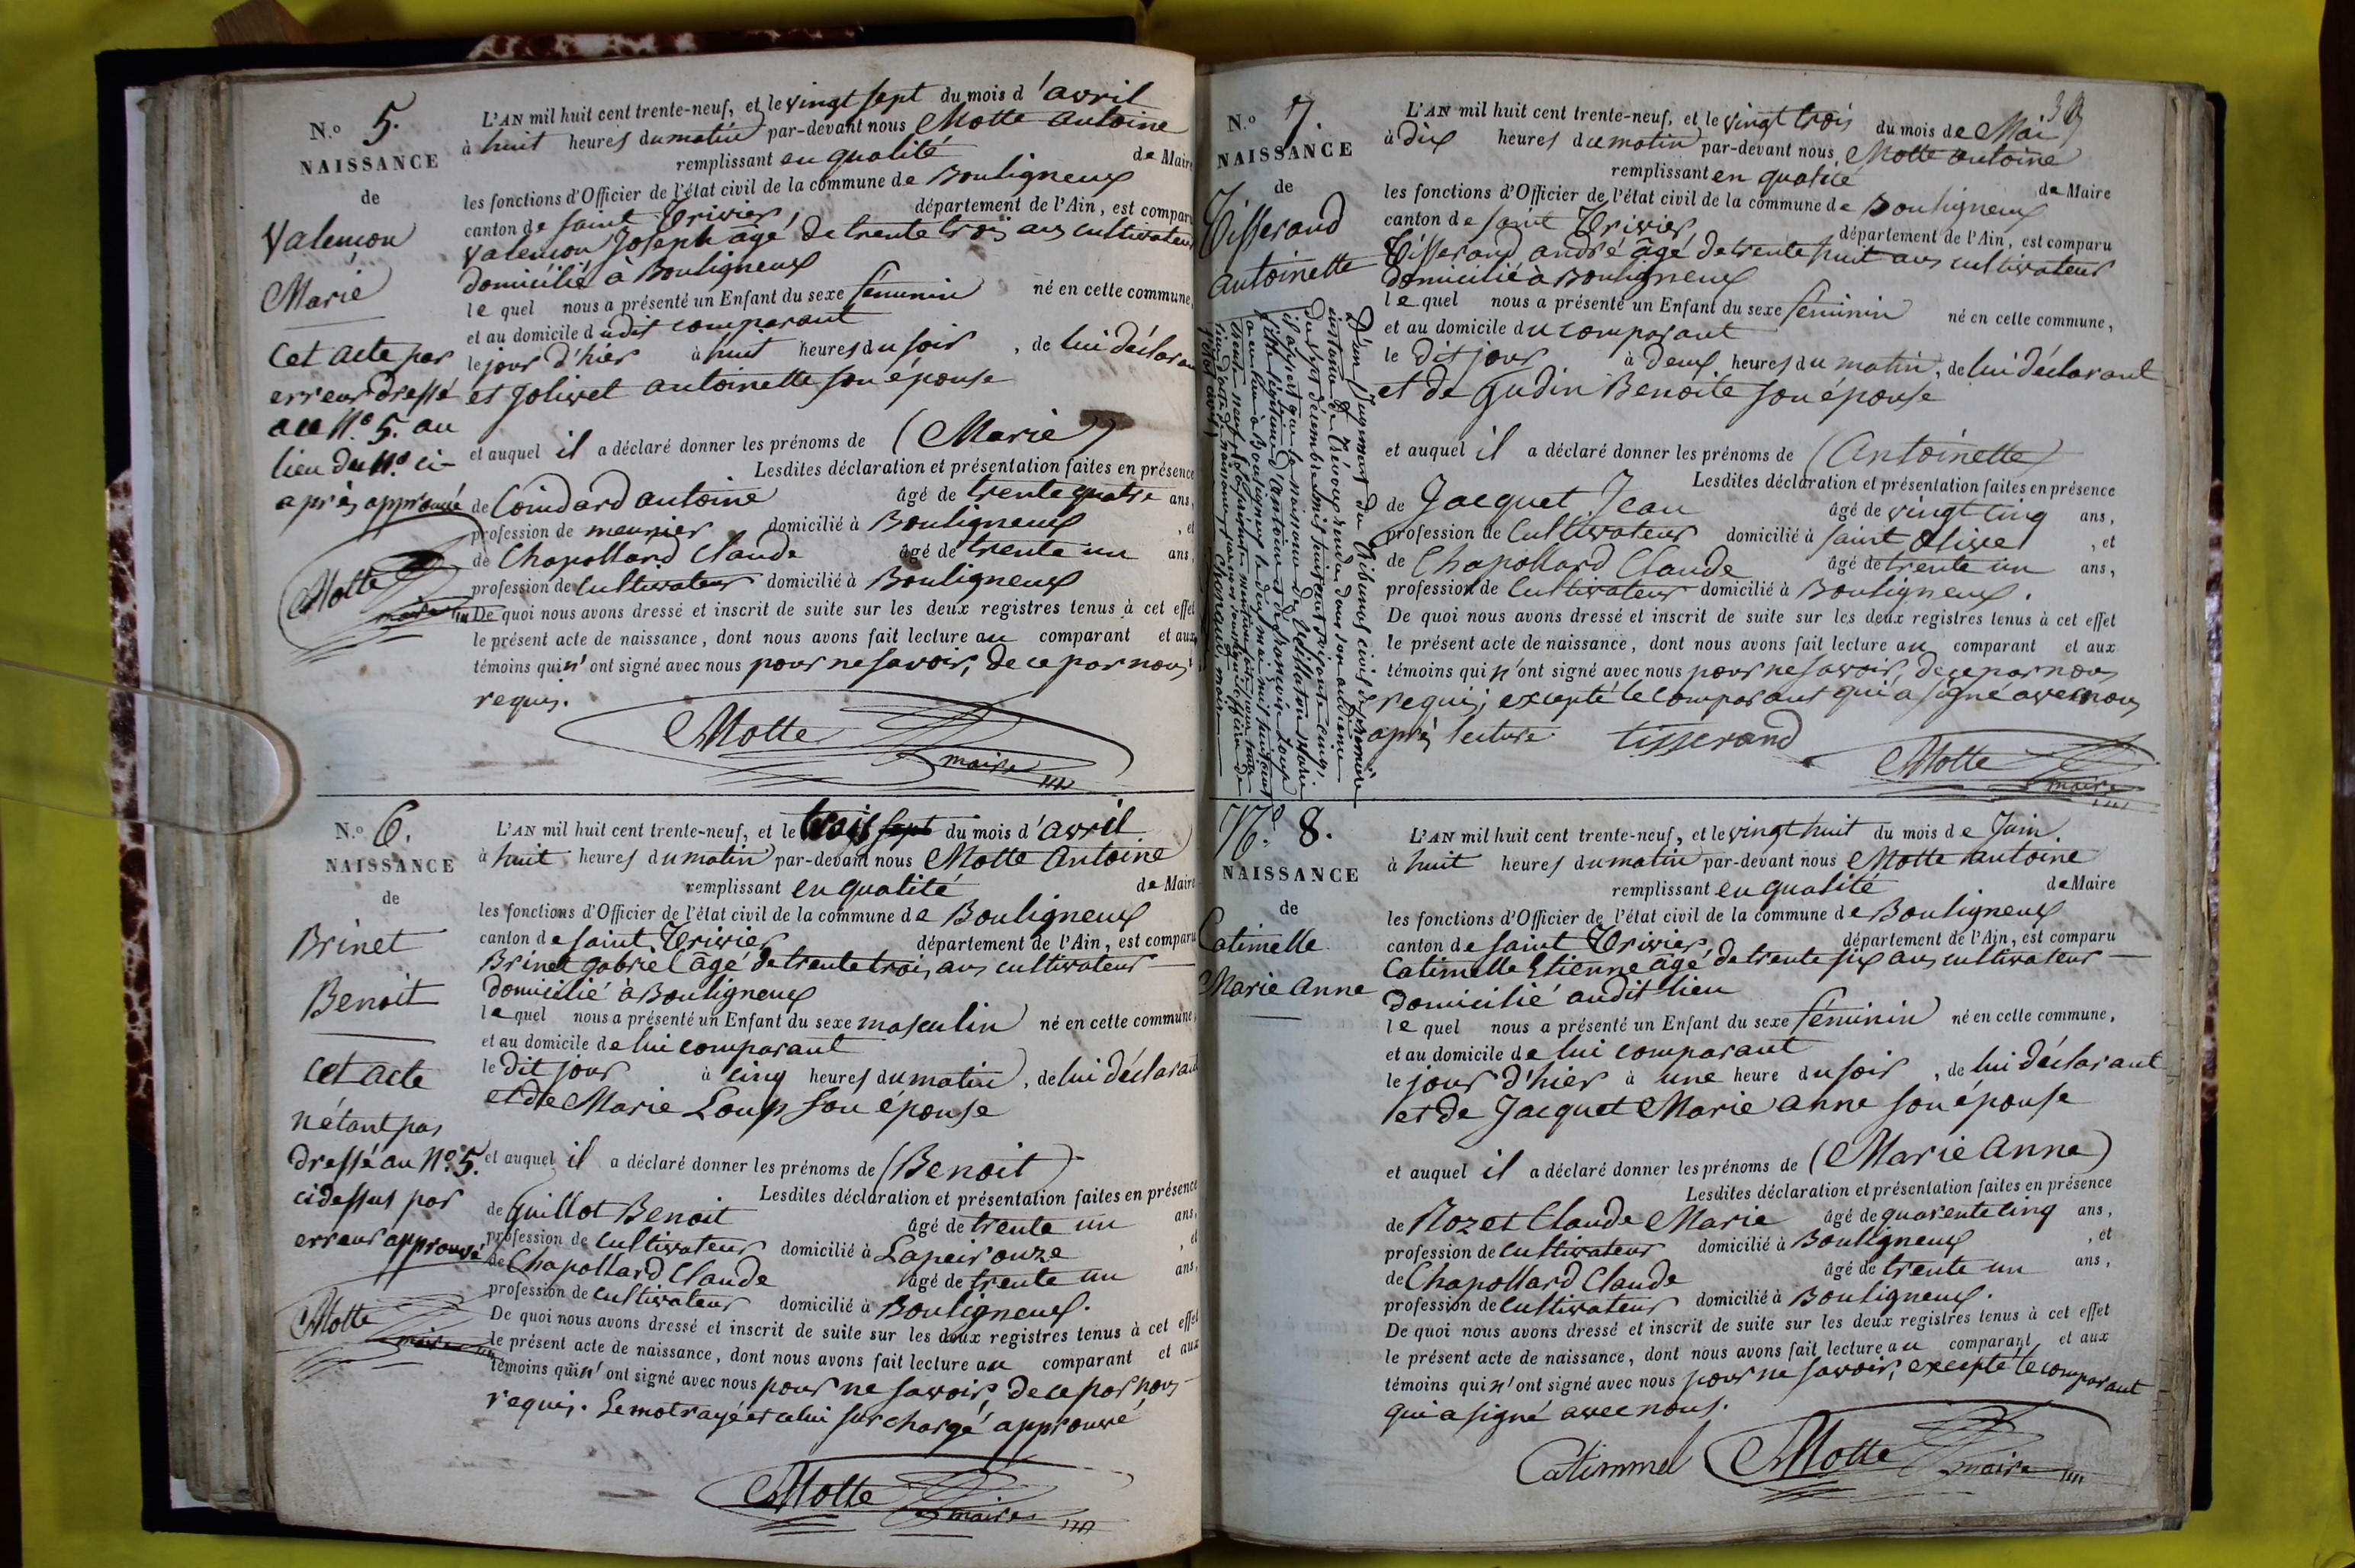 N.º 5.
NAISSANCE
de
Valençon
Marie
Cet acte par
erreur dressé
au Nº 5. au
lieu du Nº ci-
après approuvé
Motte
maire
L'AN mil huit cent trente-neuf, et le vingt sept du mois d'avril
à huit heures du matin par-devant nous Motte Antoine
remplissant en qualité de Maire
les fonctions d'Officier de l'état civil de la commune de Bouligneux
canton de saint Trivier, département de l'Ain, est comparu
Valençon Joseph âgé de trente trois ans cultivateur
domicilié à Bouligneux
le quel nous a présenté un Enfant du sexe féminin né en cette commune,
et au domicile dudit comparant
le jour d'hier à huit heures du soir, de lui déclarant
et Jolivet antoinette son épouse
et auquel il a déclaré donner les prénoms de (Marie)
Lesdites déclaration et présentation faites en présence
de Coindard antoine âgé de trente quatre ans,
profession de meunier domicilié à Bouligneux, et
de Chapollard Claude âgé de trente un ans,
profession de Cultivateur domicilié à Bouligneux
De quoi nous avons dressé et inscrit de suite sur les deux registres tenus à cet effet
le présent acte de naissance, dont nous avons fait lecture au comparant et aux
témoins qui n'ont signé avec nous pour ne savoir, de ce par nous
requis.
Motte
maire
N.º 6.
NAISSANCE
de
Brinet
Benoit
Cet acte
n'étant pas
dressé au Nº 5.
ci dessus par
erreur approuvé
Motte
maire
L'AN mil huit cent trente-neuf, et le trois sept du mois d'avril
à huit heures du matin par-devant nous Motte Antoine
remplissant en qualité de Maire
les fonctions d'Officier de l'état civil de la commune de Bouligneux
canton de saint Trivier, département de l'Ain, est comparu
Brinet gabriel âgé de trente trois ans cultivateur
domicilié à Bouligneux
le quel nous a présenté un Enfant du sexe masculin né en cette commune,
et au domicile de lui comparant
le dit jour à cinq heures du matin, de lui déclarant
et de Marie Loup son épouse
et auquel il a déclaré donner les prénoms de (Benoit)
Lesdites déclaration et présentation faites en présence
de Guillot Benoit âgé de trente un ans,
profession de Cultivateur domicilié à Lapeirouze, et
de Chapollard Claude âgé de trente un ans,
profession de cultivateur domicilié à Bouligneux.
De quoi nous avons dressé et inscrit de suite sur les deux registres tenus à cet effet
le présent acte de naissance, dont nous avons fait lecture au comparant et aux
témoins qui n'ont signé avec nous pour ne savoir, de ce par nous
requis. Le mot rayé et celui surchargé approuvé
Motte
maire
N.º 7.
NAISSANCE
de
Tisserand
antoinette
D'un Jugement du Tribunal civil de première
instance de Trévoux rendu dans son audience
du sept décembre mil huit cent
il appert que la naissance de
fille légitime d'antoine et de
a eu lieu à Bouligneux le dix mai mil huit cent
trente neuf
L'AN mil huit cent trente-neuf, et le vingt trois du mois de Mai
à dix heures du matin par-devant nous Motte antoine
remplissant en qualité de Maire
les fonctions d'Officier de l'état civil de la commune de Bouligneux
canton de saint Trivier, département de l'Ain, est comparu
Tisserand andré âgé de trente huit ans cultivateur
domicilié à Bouligneux
le quel nous a présenté un Enfant du sexe féminin né en cette commune,
et au domicile du comparant
le dit jour à deux heures du matin, de lui déclarant
et de Gudin Benoite son épouse
et auquel il a déclaré donner les prénoms de (Antoinette)
Lesdites déclaration et présentation faites en présence
de Jacquet Jean âgé de vingt cinq ans,
profession de Cultivateur domicilié à saint Olive, et
de Chapollard Claude âgé de trente un ans,
profession de Cultivateur domicilié à Bouligneux.
De quoi nous avons dressé et inscrit de suite sur les deux registres tenus à cet effet
le présent acte de naissance, dont nous avons fait lecture au comparant et aux
témoins qui n'ont signé avec nous pour ne savoir, de ce par nous
requis; excepté le comparant qui a signé avec nous
après lecture. tisserand
Motte
maire
Nº 8.
NAISSANCE
de
Catimelle
Marie Anne
L'AN mil huit cent trente-neuf, et le vingt huit du mois de Juin
à huit heures du matin par-devant nous Motte antoine
remplissant en qualité de Maire
les fonctions d'Officier de l'état civil de la commune de Bouligneux
canton de saint Trivier, département de l'Ain, est comparu
Catimelle Etienne âgé de trente six ans cultivateur
domicilié audit lieu
le quel nous a présenté un Enfant du sexe féminin né en cette commune,
et au domicile de lui comparant
le jour d'hier à une heure du soir, de lui déclarant
et de Jacquet Marie anne son épouse
et auquel il a déclaré donner les prénoms de (Marie Anne)
Lesdites déclaration et présentation faites en présence
de Rozet Claude Marie âgé de quarente cinq ans,
profession de cultivateur domicilié à Bouligneux, et
de Chapollard Claude âgé de trente un ans,
profession de cultivateur domicilié à Bouligneux.
De quoi nous avons dressé et inscrit de suite sur les deux registres tenus à cet effet
le présent acte de naissance, dont nous avons fait lecture au comparant, et aux
témoins qui n'ont signé avec nous pour ne savoir, excepté le comparant
qui a signé avec nous.
Catimmel Motte
maire